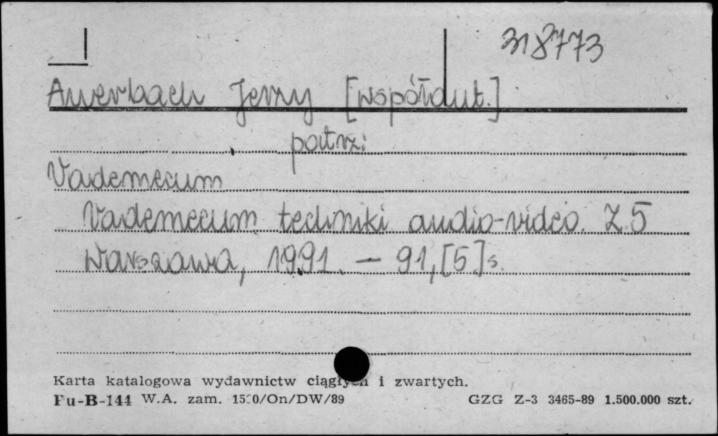 318773
Auerbach Jerzy [współaut.]
patrz:
Vademecum
Vademecum techniki audio-video. Z.5
Warszawa, 1991. – 91,[5]s.
Karta katalogowa wydawnictw ciągłych i zwartych.
Pu-B-144 W.A. zam. 1520/On/DW/89 GZG Z-3 3465-89 1.500.000 szt.